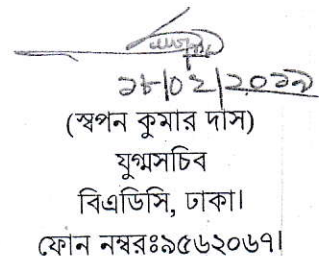 ১৮/০২/২০১৯
(স্বপন কুমার দাস)
যুগ্মসচিব
বিএডিসি, ঢাকা।
ফোন নম্বরঃ৯৫৬২০৬৭।